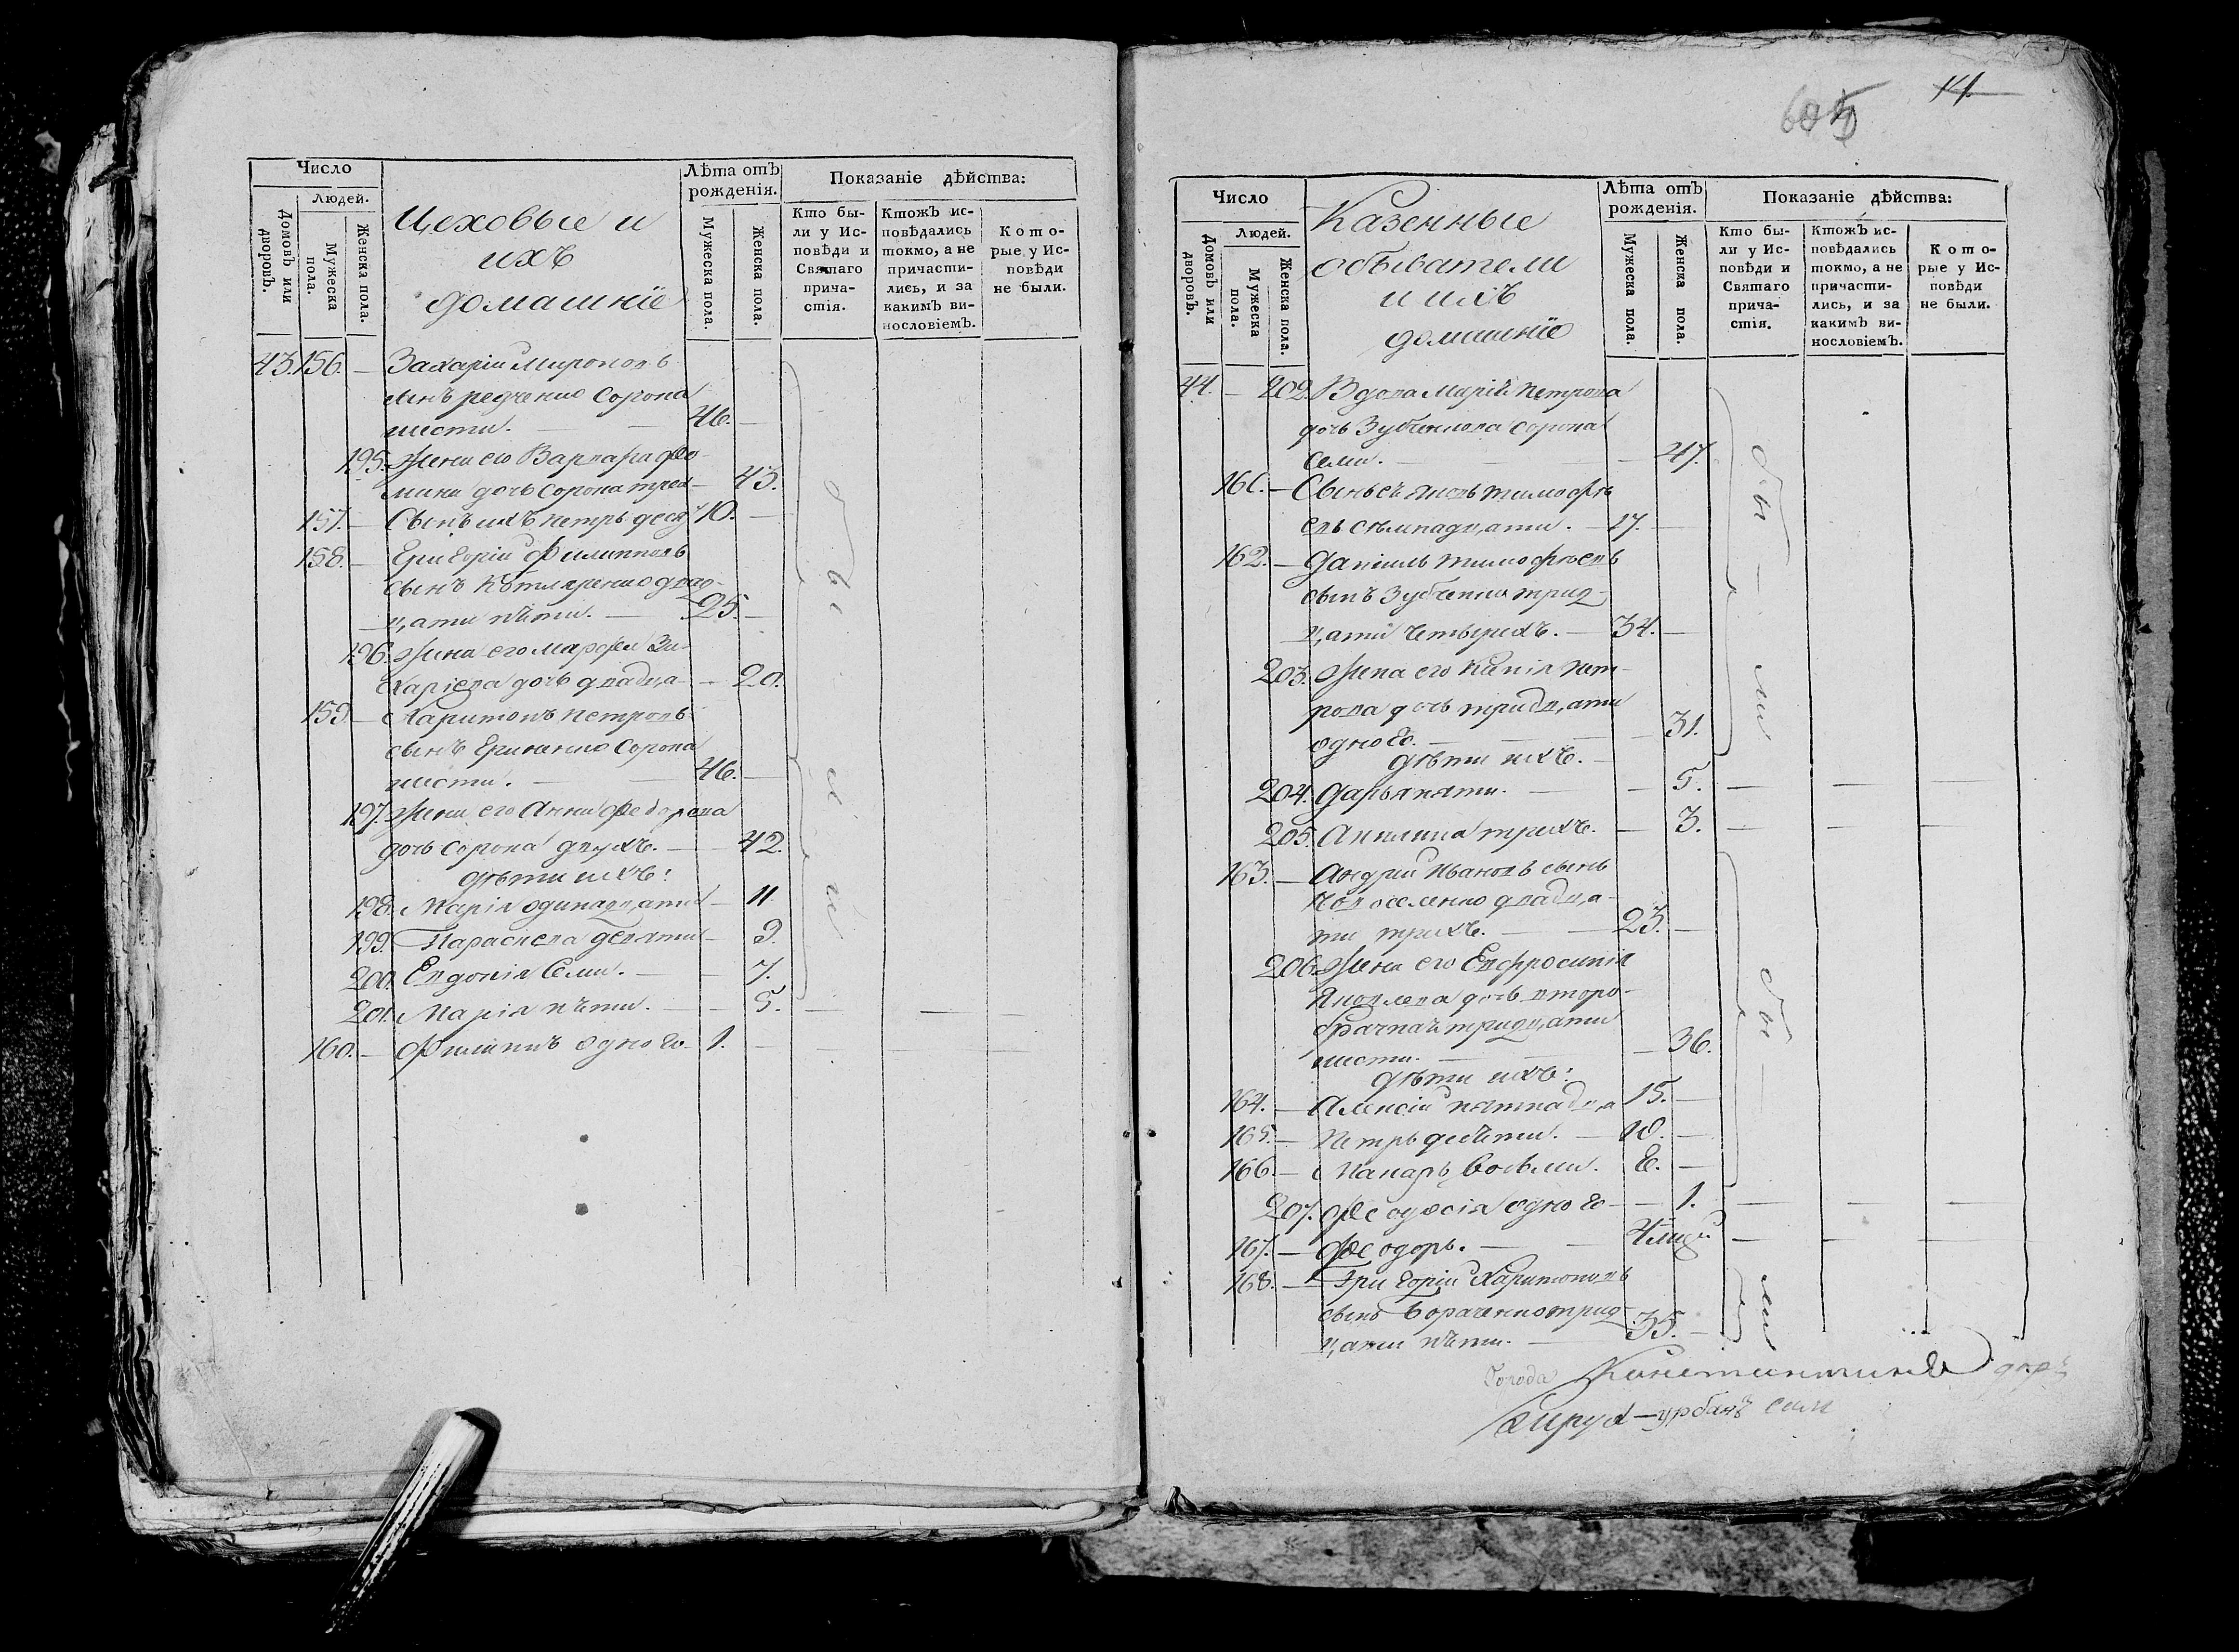 Число
Людей.
Домовъ или дворовъ.
Мужеска пола.
Женска пола.
Цеховые и
ихъ
домашніе
Лѣта отъ
рожденія.
Мужеска пола.
Женска пола.
Показаніе дѣйства:
Кто бы-
ли у Ис-
повѣди и
Святаго
прича-
стія.
Ктожъ ис-
повѣдались
токмо, а не
причасти-
лись, и за
какимъ ви-
нословіемъ.
Кото-
рые у Ис-
повѣди
не были.
43. 156. — Захарій Мироновъ
сынъ Редченко сорока
шести. — — 46. —
195. Жена его Варвара Фо-
мина дочь сорока трех — 43.
157. — Сынъ ихъ Петръ деся 10. —
158. — Григорій Филипповъ
сынъ Котляренко двад-
цати пѣти. — 25. —
196. Жена его Марфа За-
харіева дочь двадца — 20.
159. — Харитонъ Петровъ
сынъ сорока
шести. — — 46. —
197. Жена его Анна Федорова
дочь сорока двухъ. — 42.
дѣти ихъ:
198. Марія одинадцати — 11.
199. Параскева девяти — 9.
200. Евдокія семи. — — 7.
201. Марія пѣти. — — 5. — — —
160. — Филиппъ одного — 1. — — — —
были
14.
605
Число
Людей.
Домовъ или дворовъ.
Мужеска пола.
Женска пола.
Казенные
обыватели
и ихъ
домашніе
Лѣта отъ
рожденія.
Мужеска пола.
Женска пола.
Показаніе дѣйства:
Кто бы-
ли у Ис-
повѣди и
Святаго
прича-
стія.
Ктожъ ис-
повѣдались
токмо, а не
причасти-
лись, и за
какимъ ви-
нословіемъ.
Кото-
рые у Ис-
повѣди
не были.
44. — 202. Вдова Марія Петрова
дочь Зубченкова сорока
семи. — — — 47.
161. — Сынъ еѣ Яковъ Тимофѣ
евъ сѣмнадцати. — 17. —
162. — Даніилъ Тимофѣевъ
сынъ Зубченко трид-
цати четырехъ. — 34. —
203. Жена его Пет-
рова дочь тридцати
одного. — — — 31.
дѣти ихъ. —
204. Дарья пяти. — — 5. — — —
205. Акилина трехъ. — 3. — — —
163. — Андрій Ивановъ сынъ
Новоселенко двадца-
ти трехъ. — — 23. —
206. Жена его Евфросинія
Яковлева дочь второ-
брачная тридцати
шести. — — — 36.
дѣти ихъ:
164. — Алексій пятнадца 15. —
165. — Петръ десѣти. — 10. —
166. — Макаръ восьми. 8. —
207. Феодосія одного — — 1. — — —
167. — Феодоръ. — —
168. — Григорій Харитоновъ
сынъ трид-
цати пѣти. — 35. —
бы — ли
бы — ли
Города